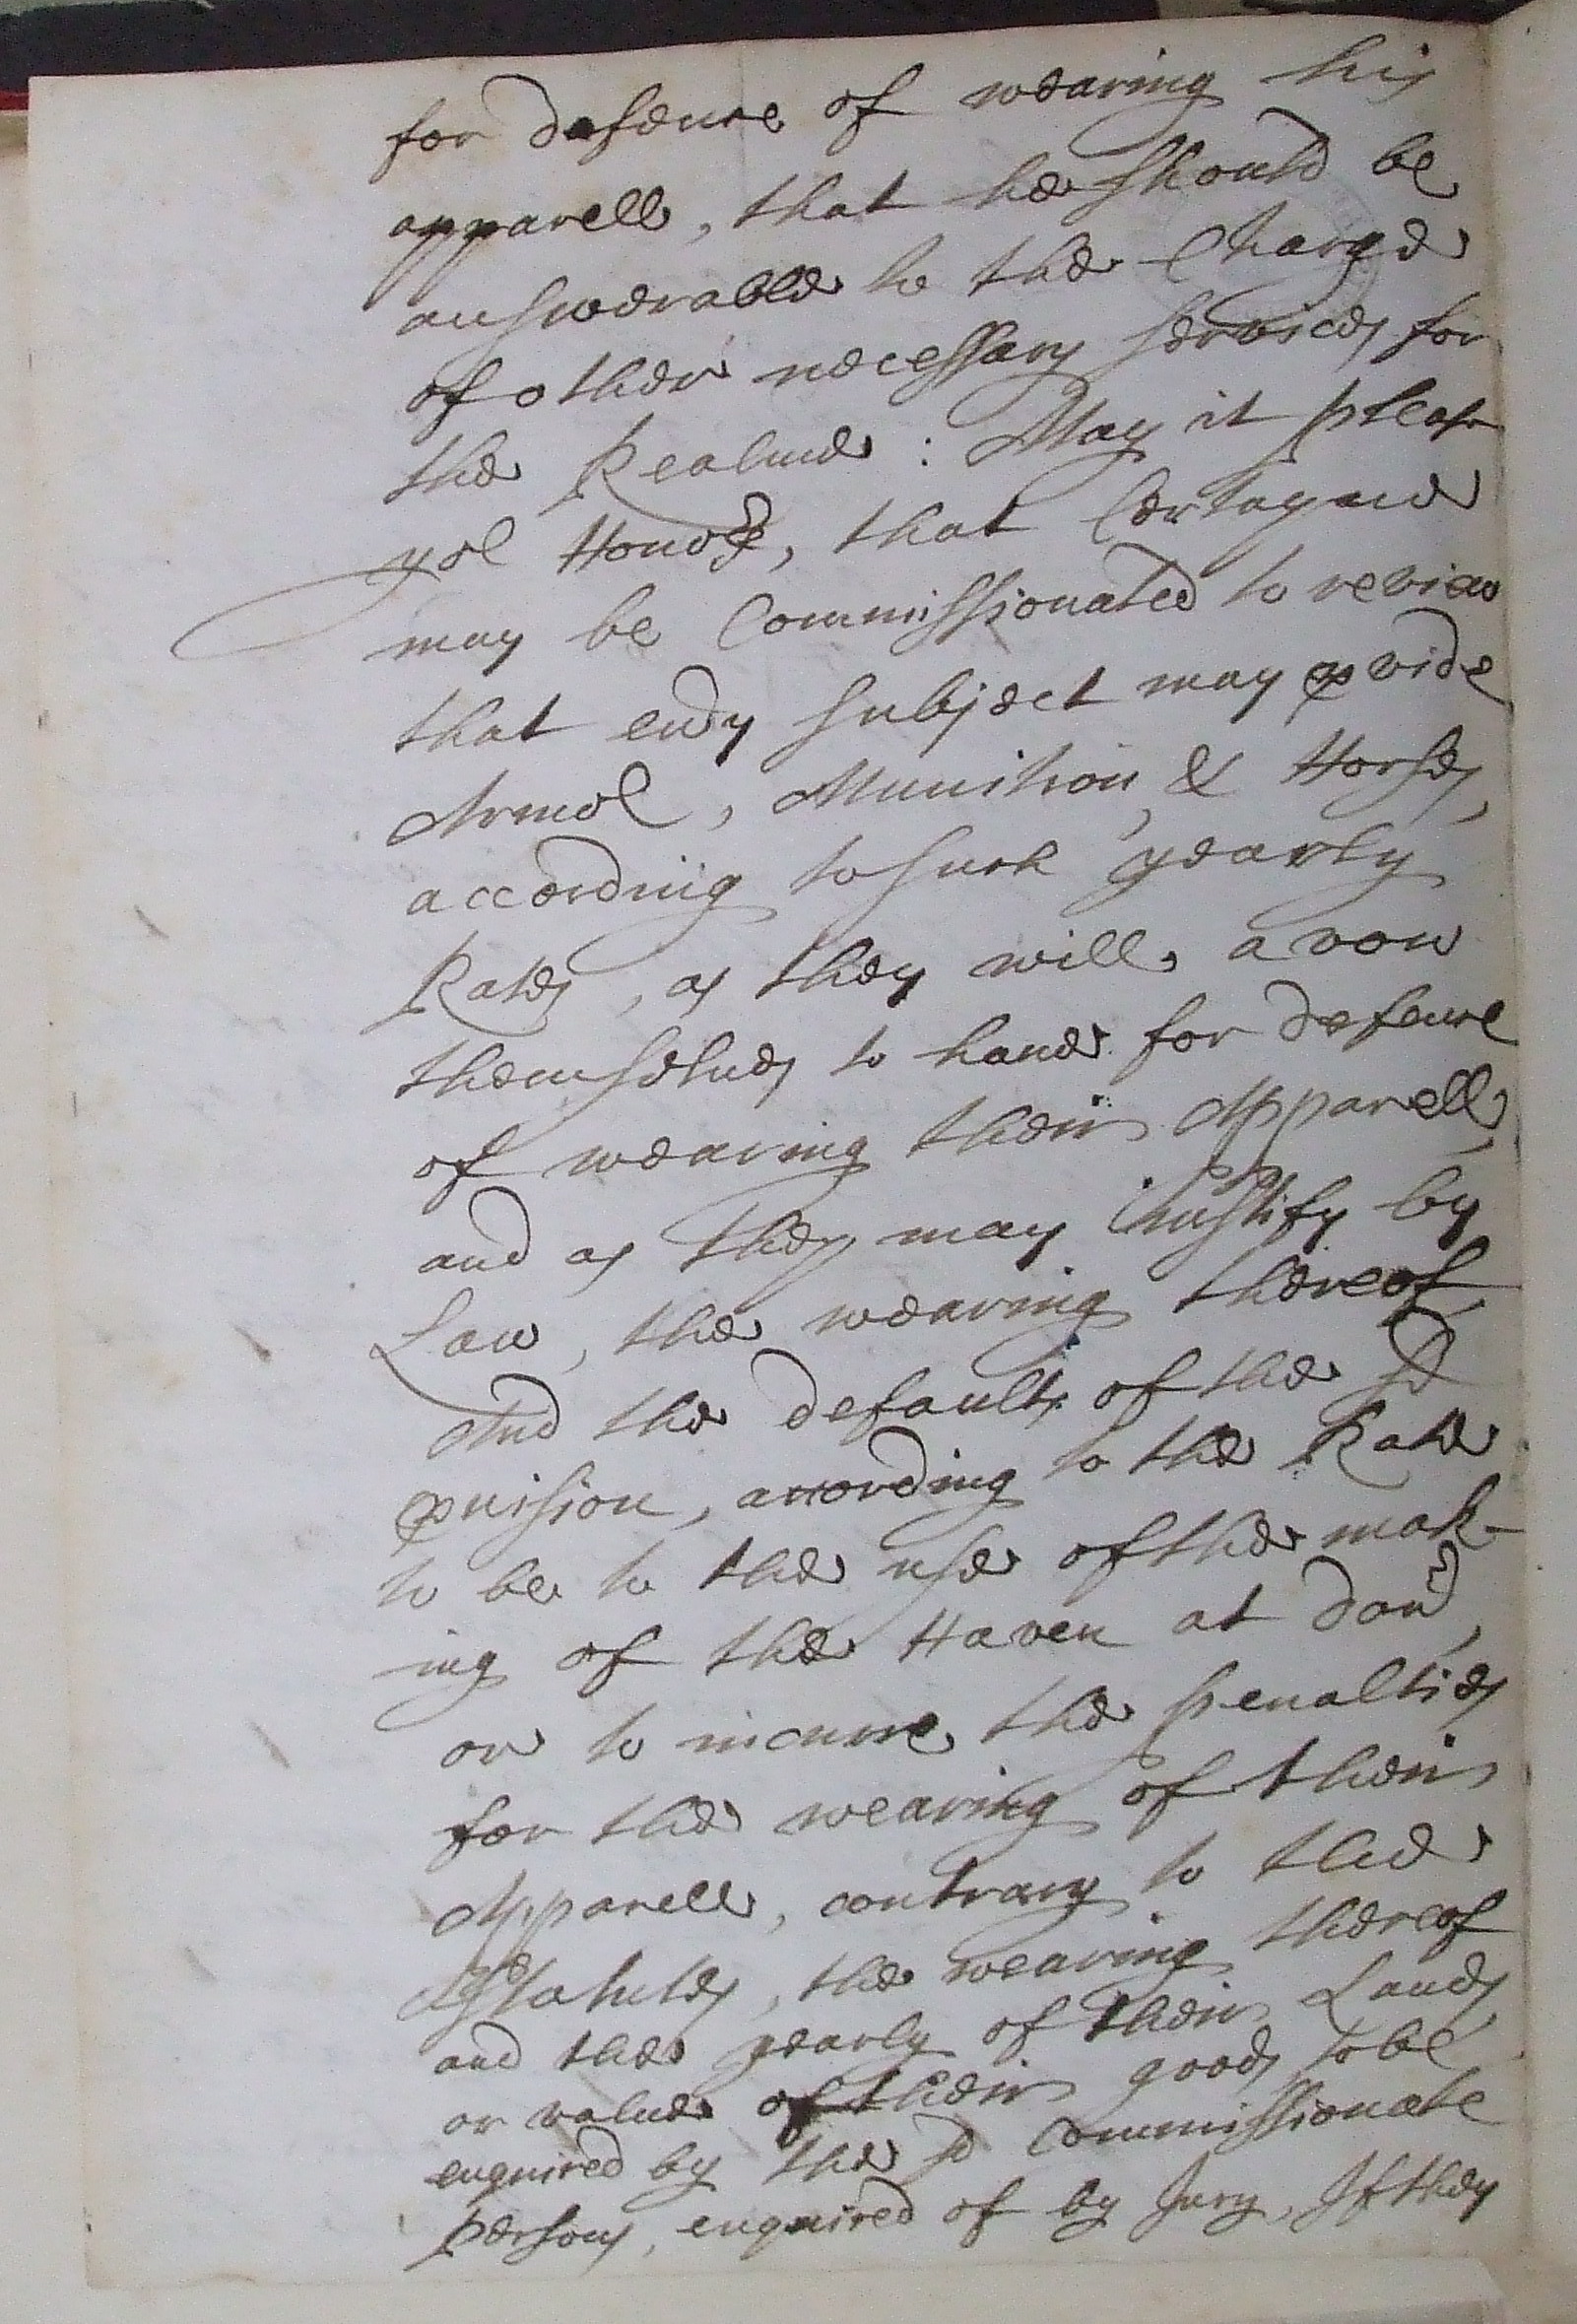 for defence of wearing his
apparell, that he should be
answerable to the Charge
of other necessary services for
the Realme : May it please
yor Honors, that Certayne
may be Commissionated to review
that every subject may pvide
Armor, Munition, & Horses,
according to such yearly
Rates, as they will avow
themselves to haue for defence
of wearing their Apparell,
and as they may iustify by
Law, the wearing thereof,
And the defaults of the sd
pvision, according to the Rate
to be to the use of the mak-
ing of the Haven at Dover,
or to incurre the penalties
for the wearing of their
Apparell, contrary to the
Statutes, the wearing thereof
and the yearly of their Lands,
or value of their goods to be
enquired by the sd Commissionate
persons, enquired of by Jury, If they